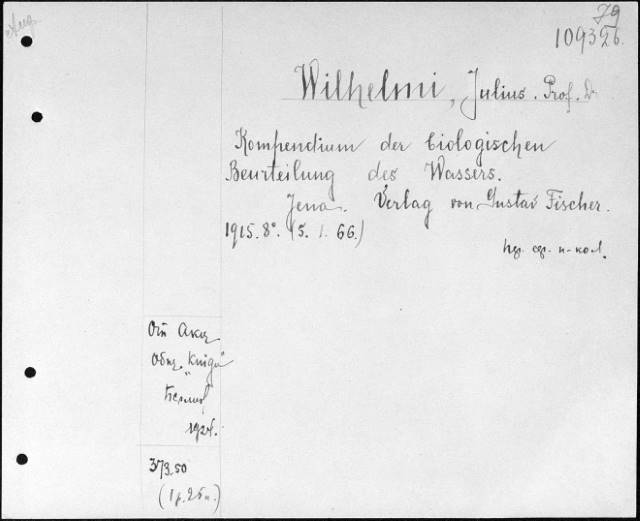 79
109326.
Wilhelmi, Julius. Prof. Dr
Kompendium der biologischen
Beurteilung des Wassers.
Jena. Verlag von Gustav Fischer.
1915. 8°. (5. 1. 66.)
От Акц
Общ. „Книга"
373.50
(1р. 25к.)